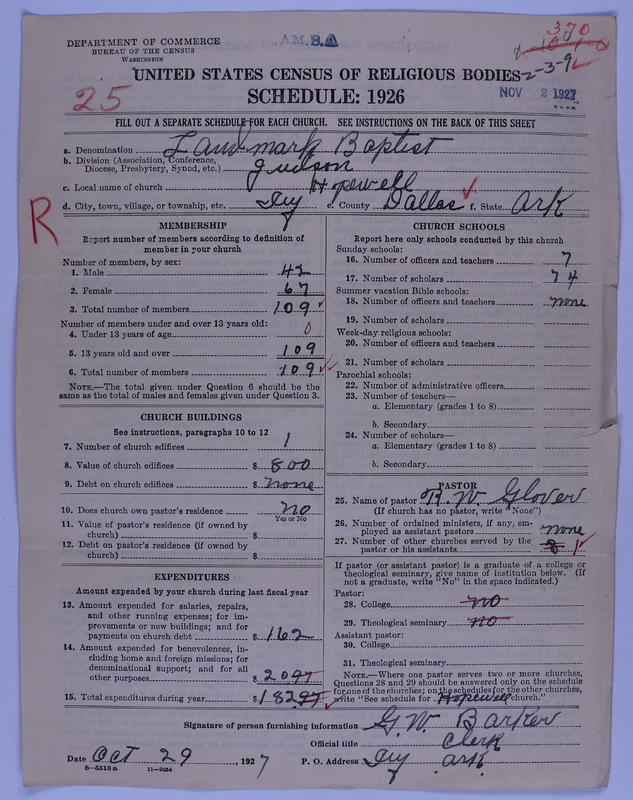 A.M.B.A.
370
DEPARTMENT OF COMMERCE
BUREAU OF THE CENSUS
WASHINGTON
2-3-9
UNITED STATES CENSUS OF RELIGIOUS BODIES
25
SCHEDULE: 1926
NOV 2 1927
FILL OUT A SEPARATE SCHEDULE FOR EACH CHURCH. SEE INSTRUCTIONS ON THE BACK OF THIS SHEET
a. Denomination Landmark Baptist
b. Division (Association, Conference, Diocese, Presbytery, Synod, etc.) Judson
c. Local name of church Hopewell
d. City, town, village, or township, etc. Ivy e. County Dallas f. State Ark
R
MEMBERSHIP
Report number of members according to definition of
member in your church
Number of members, by sex:
1. Male 42
2. Female 67
3. Total number of members 109
Number of members under and over 13 years old:
4. Under 13 years of age 0
5. 13 years old and over 109
6. Total number of members 109
NOTE.—The total given under Question 6 should be the
same as the total of males and females given under Question 3.
CHURCH BUILDINGS
See instructions, paragraphs 10 to 12
7. Number of church edifices 1
8. Value of church edifices $ 800
9. Debt on church edifices $ none
10. Does church own pastor's residence no
Yes or No
11. Value of pastor's residence (if owned by
church) $
12. Debt on pastor's residence (if owned by
church) $
EXPENDITURES
Amount expended by your church during last fiscal year
13. Amount expended for salaries, repairs,
and other running expenses; for im-
provements or new buildings; and for
payments on church debt $ 162
14. Amount expended for benevolences, in-
cluding home and foreign missions; for
denominational support; and for all
other purposes $ 2097
15. Total expenditures during year $ 18297
CHURCH SCHOOLS
Report here only schools conducted by this church
Sunday schools:
16. Number of officers and teachers 7
17. Number of scholars 74
Summer vacation Bible schools:
18. Number of officers and teachers none
19. Number of scholars
Week-day religious schools:
20. Number of officers and teachers
21. Number of scholars
Parochial schools:
22. Number of administrative officers
23. Number of teachers—
a. Elementary (grades 1 to 8)
b. Secondary
24. Number of scholars—
a. Elementary (grades 1 to 8)
b. Secondary
PASTOR
25. Name of pastor R. W. Glover
(If church has no pastor, write "None")
26. Number of ordained ministers, if any, em-
ployed as assistant pastors none
27. Number of other churches served by the
pastor or his assistants 3 1
If pastor (or assistant pastor) is a graduate of a college or
theological seminary, give name of institution below. (If
not a graduate, write "No" in the space indicated.)
Pastor:
28. College no
29. Theological seminary no
Assistant pastor:
30. College
31. Theological seminary
NOTE.—Where one pastor serves two or more churches,
Questions 28 and 29 should be answered only on the schedule
for one of the churches; on the schedules for the other churches,
write "See schedule for Hopewell church."
Signature of person furnishing information G. W. Barker
Official title Clerk
Date Oct 29, 1927 P. O. Address Ivy Ark.
8-5518a 11-9034